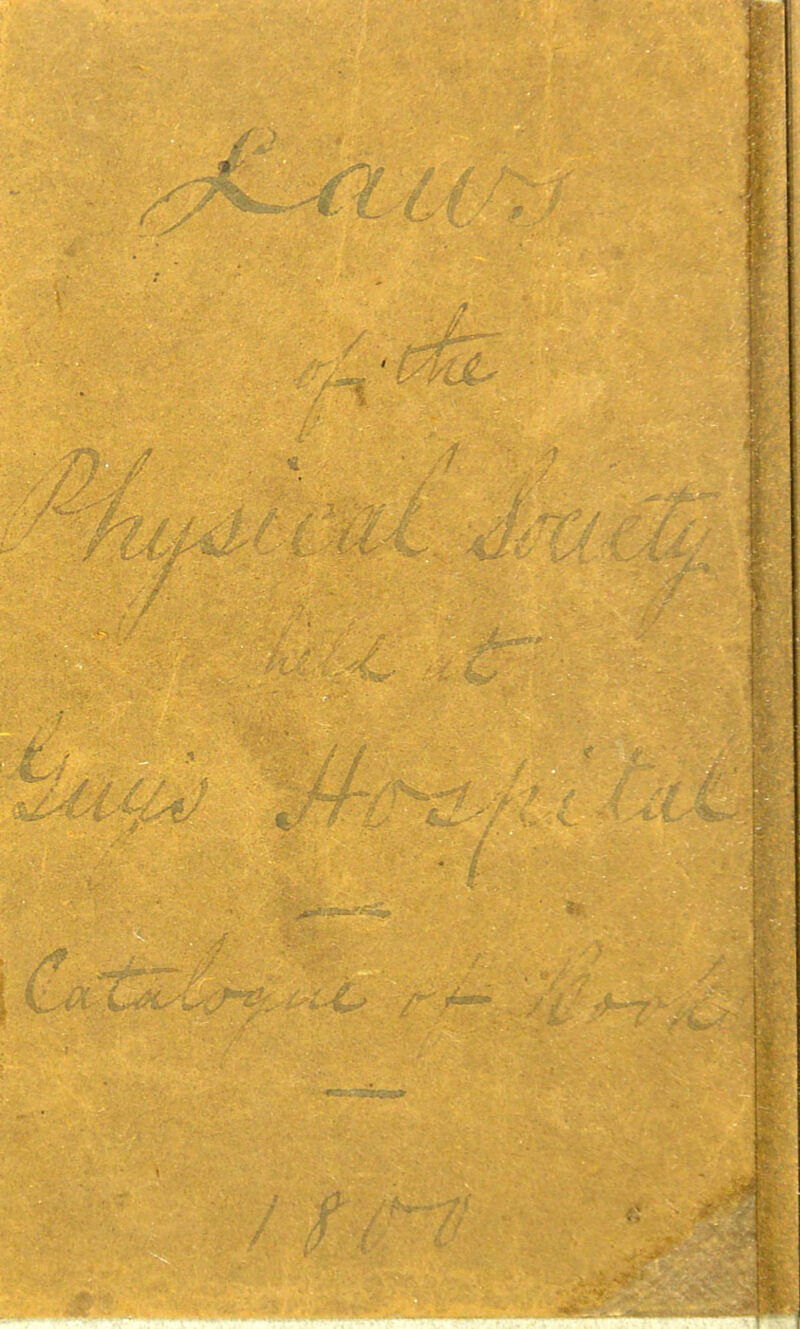 Laws
of the
Physical Society
held at
Guy's Hospital
—
Catalogue of Books
—
1800